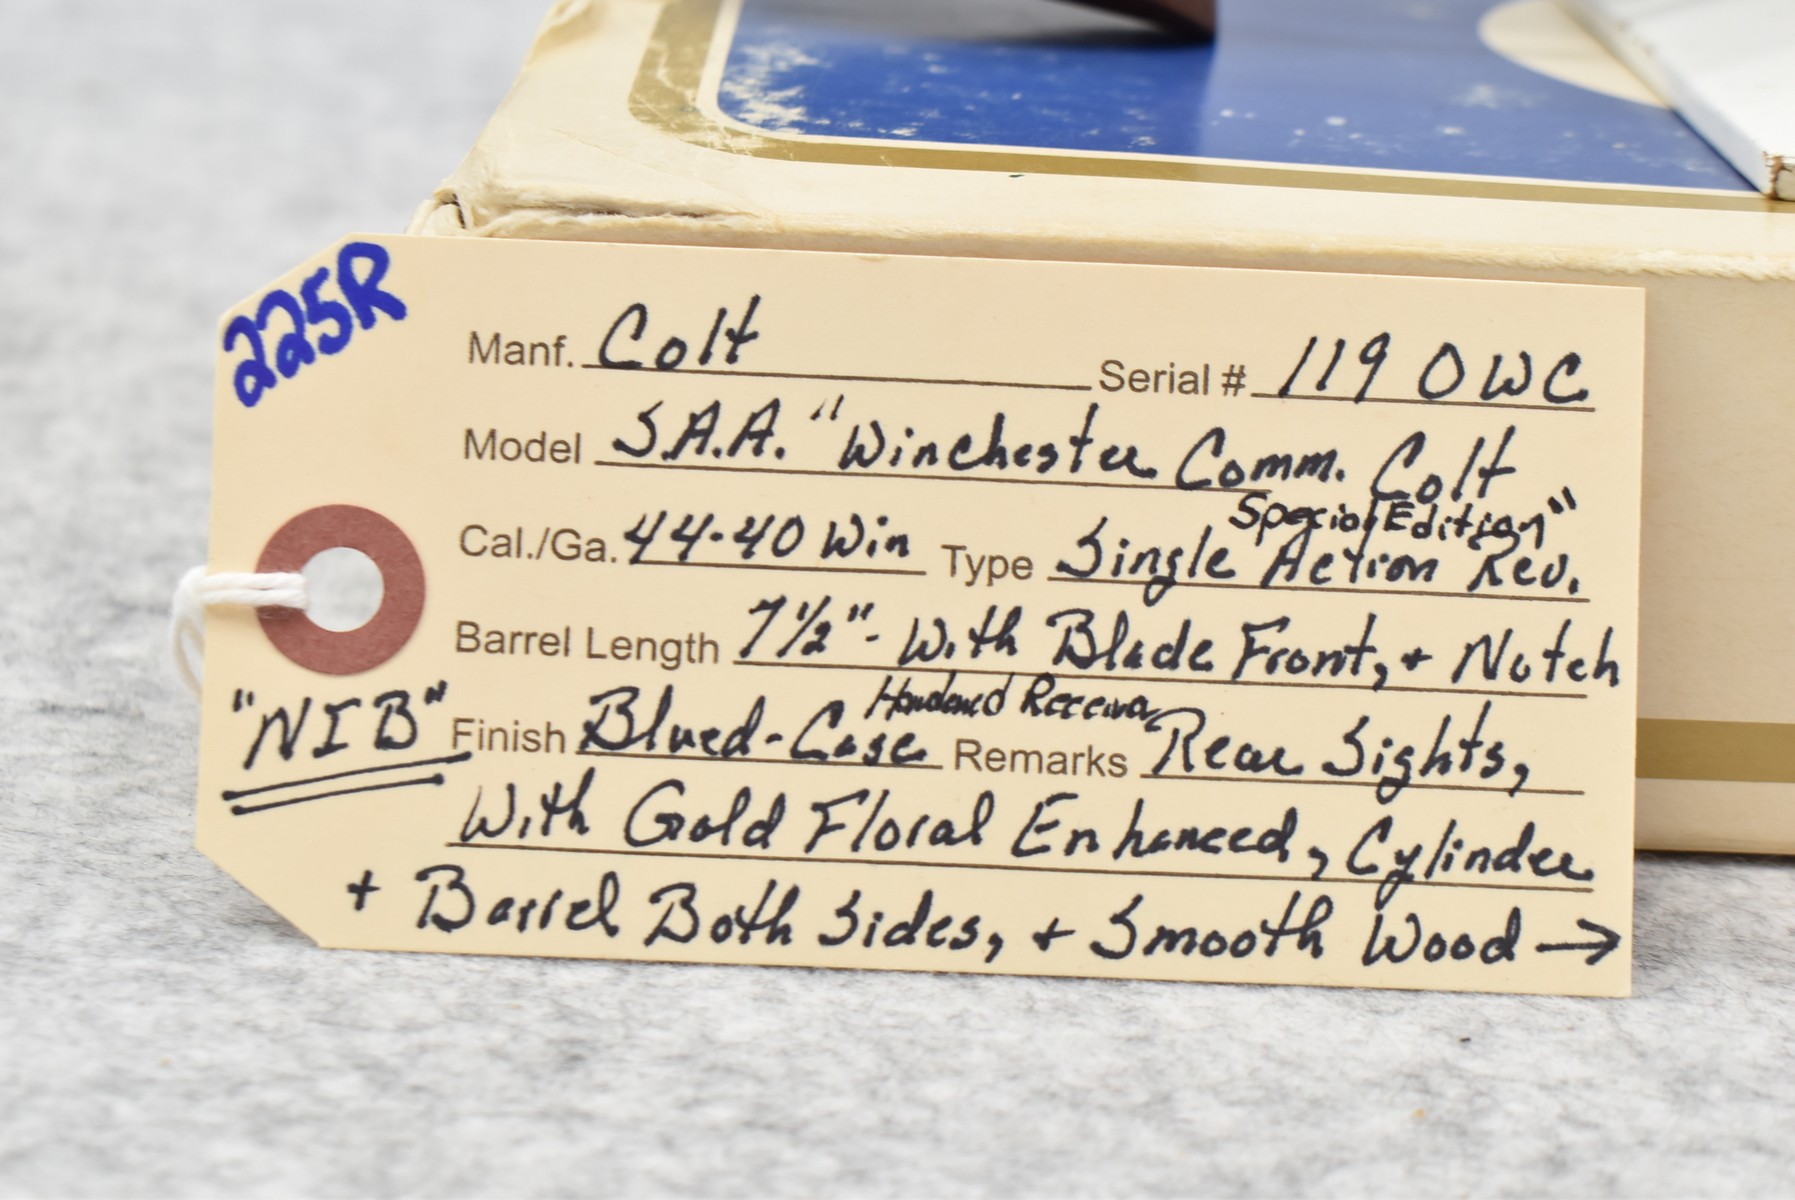 225R
Manf. Colt Serial # 119 OWC
Model S.A.A. "Winchester Comm. Colt
Special Edition"
Cal./Ga. 44-40 Win Type Single Action Rev.
Barrel Length 7½"- With Blade Front, + Notch
Hardened Receiver
"NIB" Finish Blued-Case Remarks Rear Sights,
With Gold Floral Enhanced, Cylinder
+ Barrel Both Sides, + Smooth Wood →